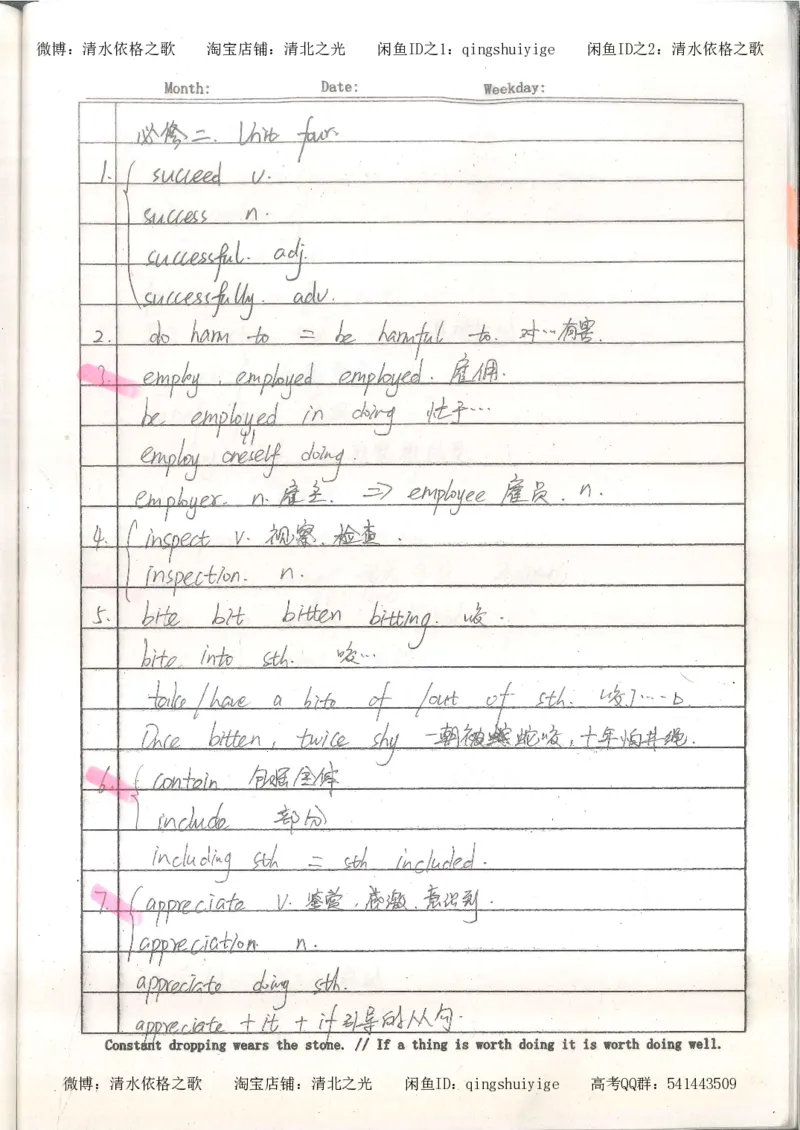 微博：清水依格之歌 淘宝店铺：清北之光 闲鱼ID之1：qingshuiyige 闲鱼ID之2：清水依格之歌
Month: Date: Weekday:
必修二. Unit four.
1. succeed v.
success n.
successful. adj.
successfully. adv.
2. do harm to = be harmful to. 对…有害.
3. employ. employed employed. 雇佣.
be employed in doing 忙于…
employ oneself doing.
employer. n. 雇主. => employee 雇员. n.
4. inspect v. 视察, 检查.
inspection. n.
5. bite bit bitten bitting. 咬.
bite into sth. 咬…
take/have a bite of /out of sth. 咬了…一口.
Once bitten, twice shy 一朝被蛇咬,十年怕井绳.
6. contain 包括全体
include 部分
including sth = sth included.
7. appreciate v. 鉴赏,感激,意识到.
appreciation n.
appreciate doing sth.
appreciate + it + if引导的从句.
Constant dropping wears the stone. // If a thing is worth doing it is worth doing well.
微博：清水依格之歌 淘宝店铺：清北之光 闲鱼ID：qingshuiyige 高考QQ群：541443509